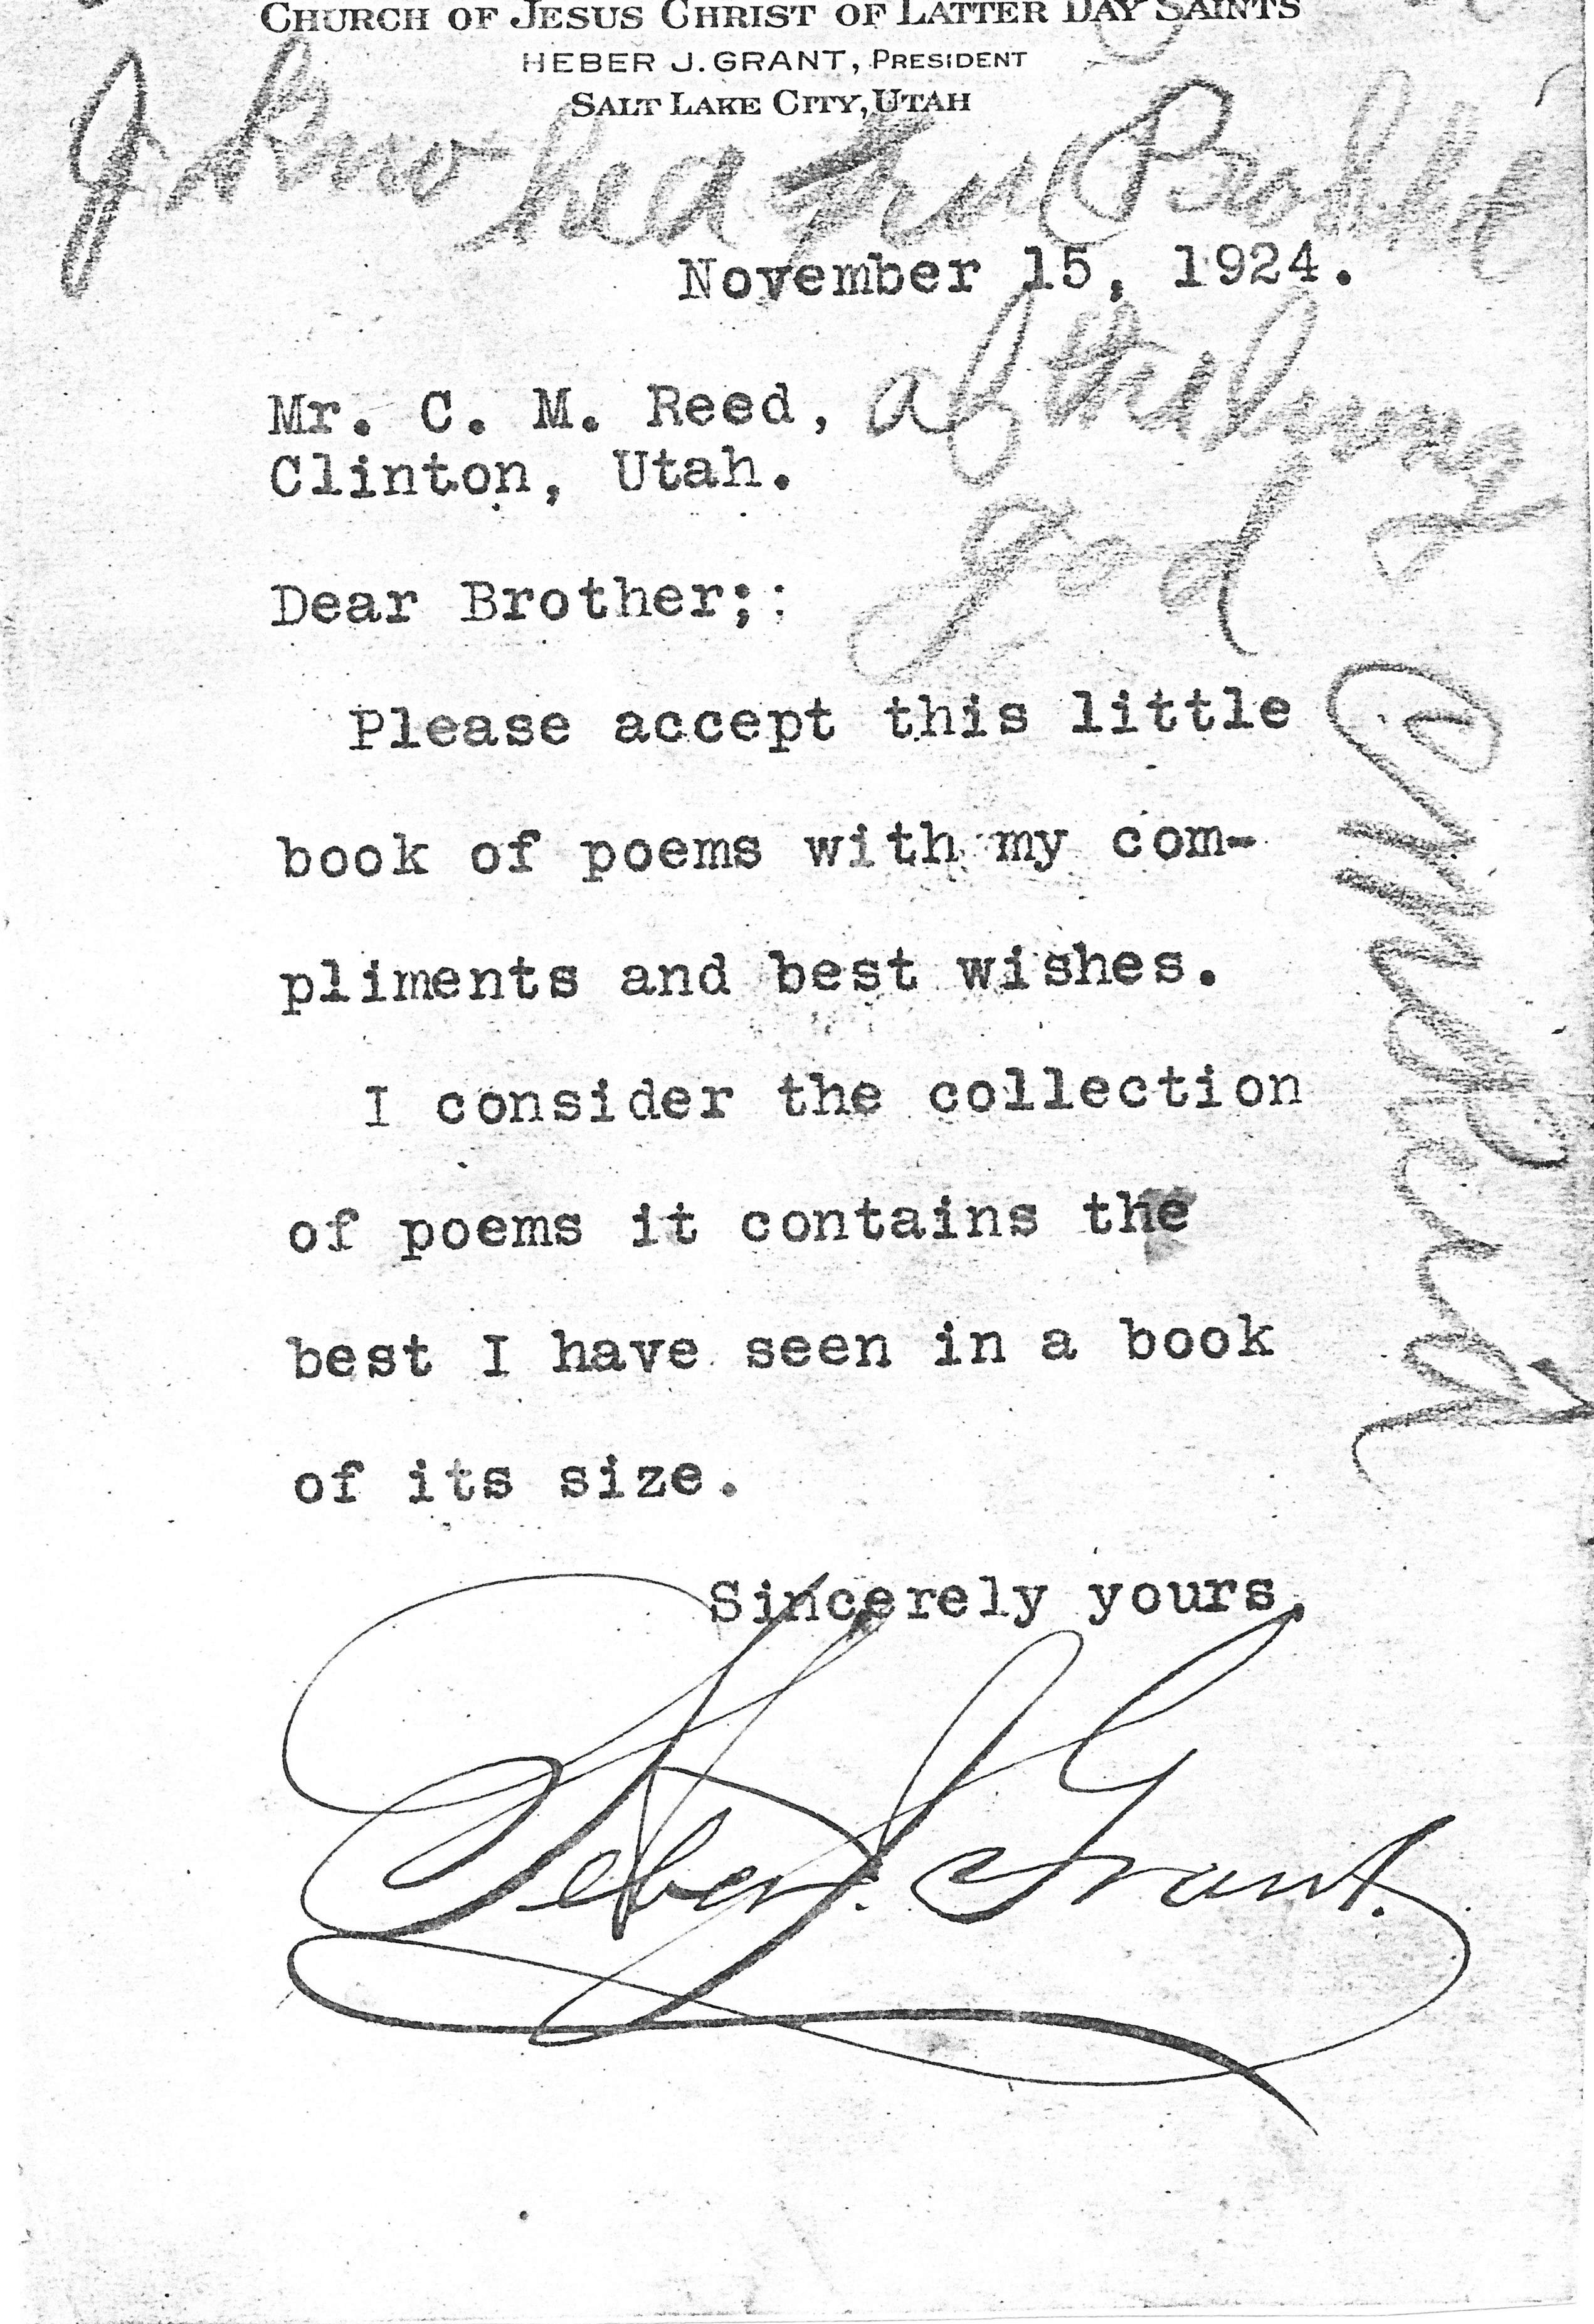 CHURCH OF JESUS CHRIST OF LATTER DAY SAINTS
HEBER J. GRANT, PRESIDENT
SALT LAKE CITY, UTAH
I know hea a true Prophet
November 15, 1924.
of the living
Mr. C. M. Reed,
Clinton, Utah.
god
Dear Brother;:
Please accept this little
book of poems with my com-
pliments and best wishes.
I consider the collection
of poems it contains the
best I have seen in a book
of its size.
Sincerely yours,
Heber J. Grant.